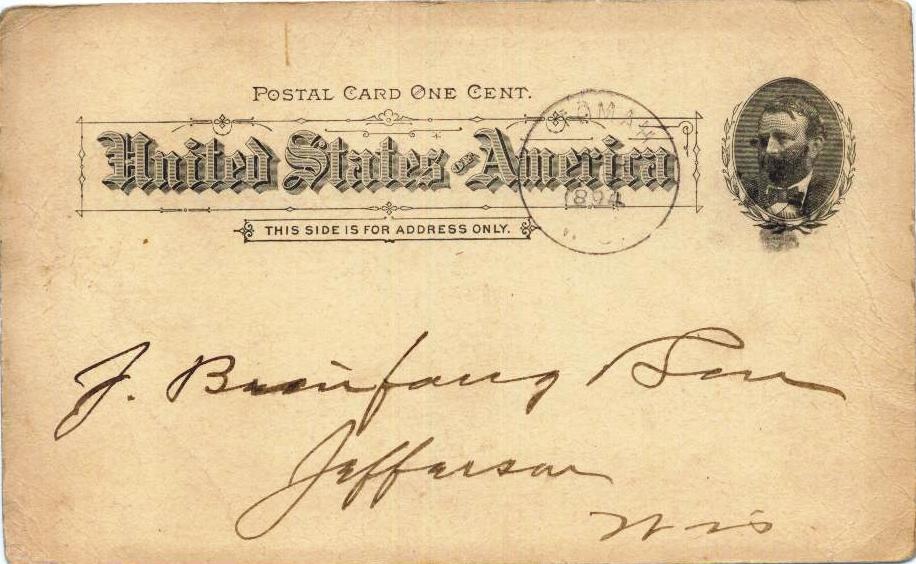 POSTAL CARD ONE CENT.
United States OF America
1894
THIS SIDE IS FOR ADDRESS ONLY.
J. Son
Jefferson
Wis